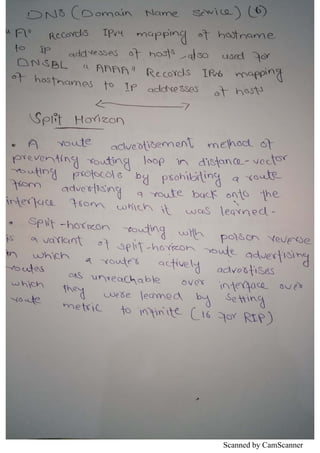 DNS (Domain Name Service) (6)
"A" Records IPv4 mapping of hostname
to ip addresses of hosts, also used for
DNSBL "AAAA" Records IPv6 mapping
of hostnames to IP addresses of hosts
Split Horizon
• A route advertisement method of
preventing routing loop in distance-vector
routing protocols by prohibiting a route
from advertising a route back onto the
interface from which it was learned.
• Split-horizon routing with poison reverse
is a variant of split-horizon route advertising
in which a router actively advertises
routes as unreachable over interface over
which they were learned by setting
route metric to infinite (16 for RIP)
Scanned by CamScanner